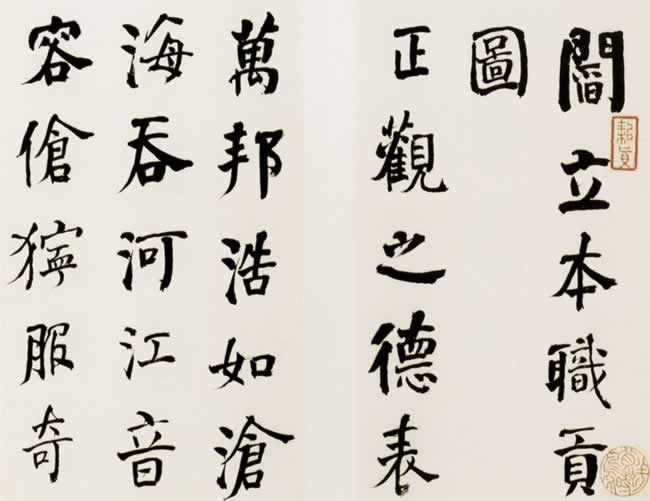 閻立本職貢
圖
正觀之德表
萬邦浩如滄
海吞河江音
容傖獰服奇